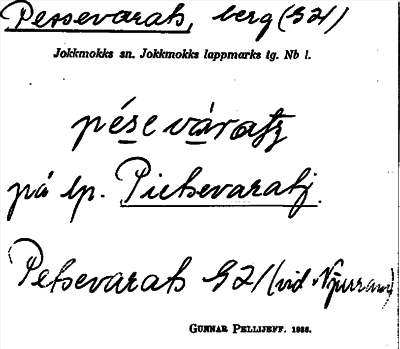 Pessevarats, berg (S21)
Jokkmokks sn. Jokkmokks lappmarks tg. Nb l.
pése váratz
på lp. Pietsevaratj.
Petsevarats S21 (vid Njurram)
GUNNAR PELLIJEFF. 1936.